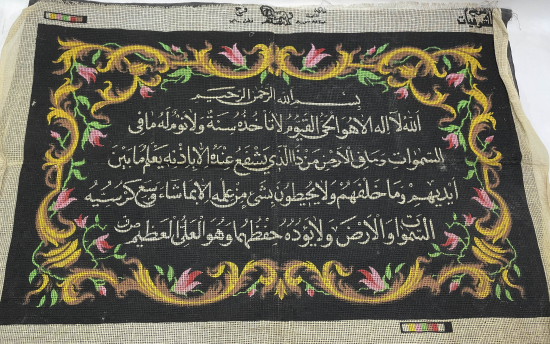 بسم الله الرحمن الرحيم
الله لا إله الا هو الحي القيوم لا تأخذه سنة ولا نوم له ما في
السموات وما في الارض من ذا الذي يشفع عنده الا باذنه يعلم ما بين
ايديهم وما خلفهم ولا يحيطون بشئ من علمه الا بما شاء وسع كرسيه
السموات والارض ولا يؤده حفظهما وهو العلي العظيم